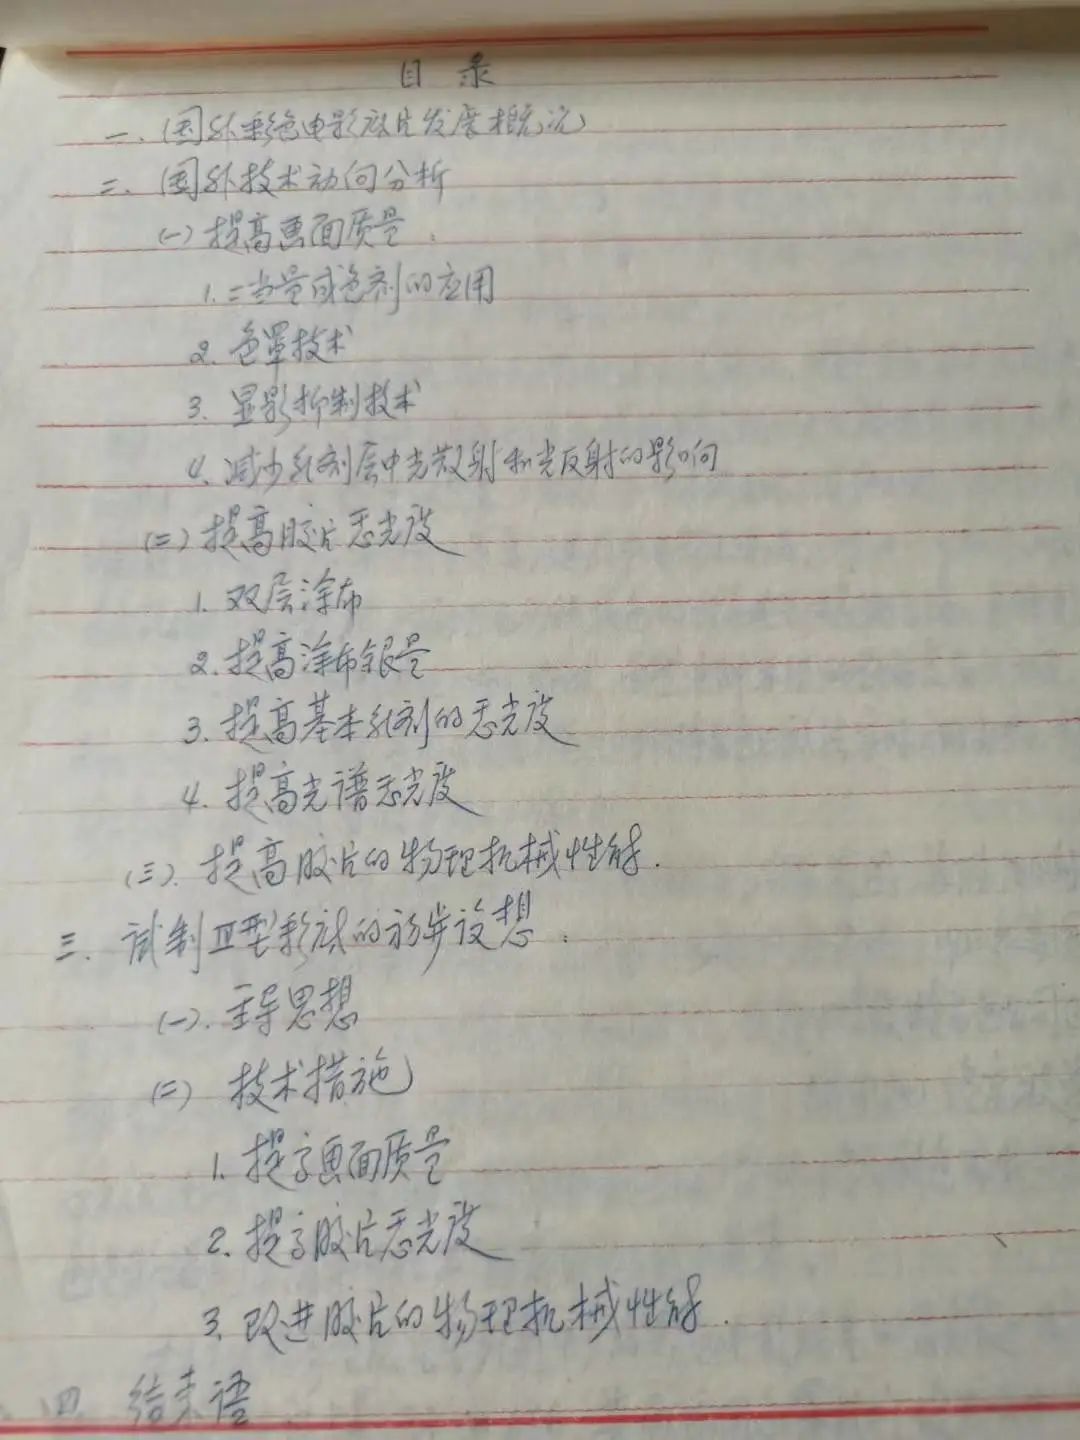 目录
一、国外彩色电影底片发展概况
二、国外技术动向分析
(一)提高画面质量.
1.二当量成色剂的应用
2.色罩技术
3.显影抑制技术
4.减少乳剂层中光散射和光反射的影响
(二)提高胶片感光度
1.双层涂布
2.提高涂布银量
3.提高基本乳剂的感光度
4.提高光谱感光度
(三).提高胶片的物理机械性能.
三、试制Ⅲ型彩底的初步设想:
(一).主导思想
(二)技术措施
1.提高画面质量
2.提高胶片感光度
3.改进胶片的物理机械性能.
四 结束语